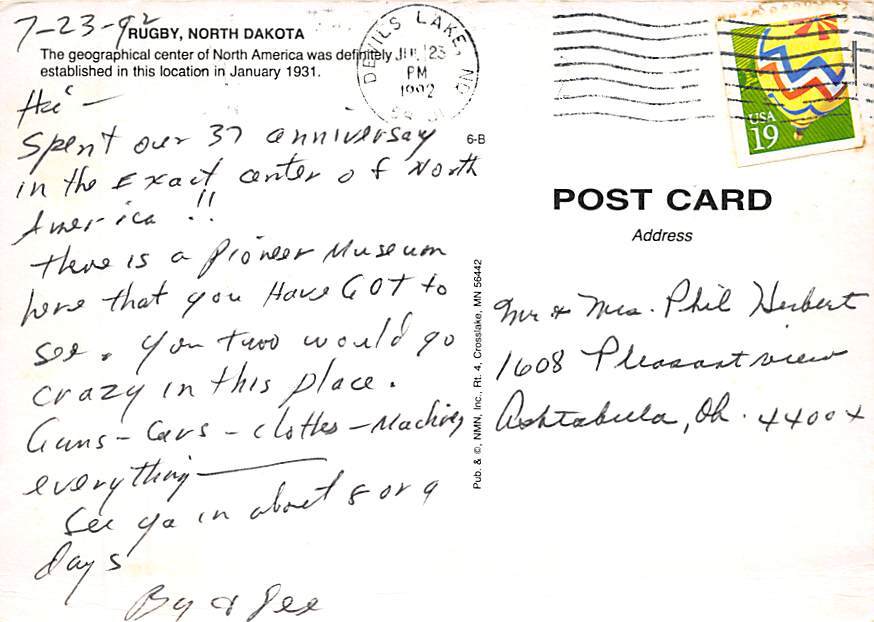 7-23-92
RUGBY, NORTH DAKOTA
The geographical center of North America was definitely
established in this location in January 1931.
Hi -
Spent our 37 anniversay
in the Exact center of North
America !!
there is a Pioneer Museum
here that you Have GOT to
see. You two would go
crazy in this place.
Guns - Cars - clothes - Machines
everything
See ya in about 8 or 9
days
By & Gee
DEVILS LAKE, ND
JUL 23
PM
1992
USA
19
6-B
POST CARD
Address
Mr & Mrs. Phil Herbert
1608 Pleasantview
Ashtabula, Oh. 44004
Pub. & ©, NMN, Inc., Rt. 4, Crosslake, MN 56442